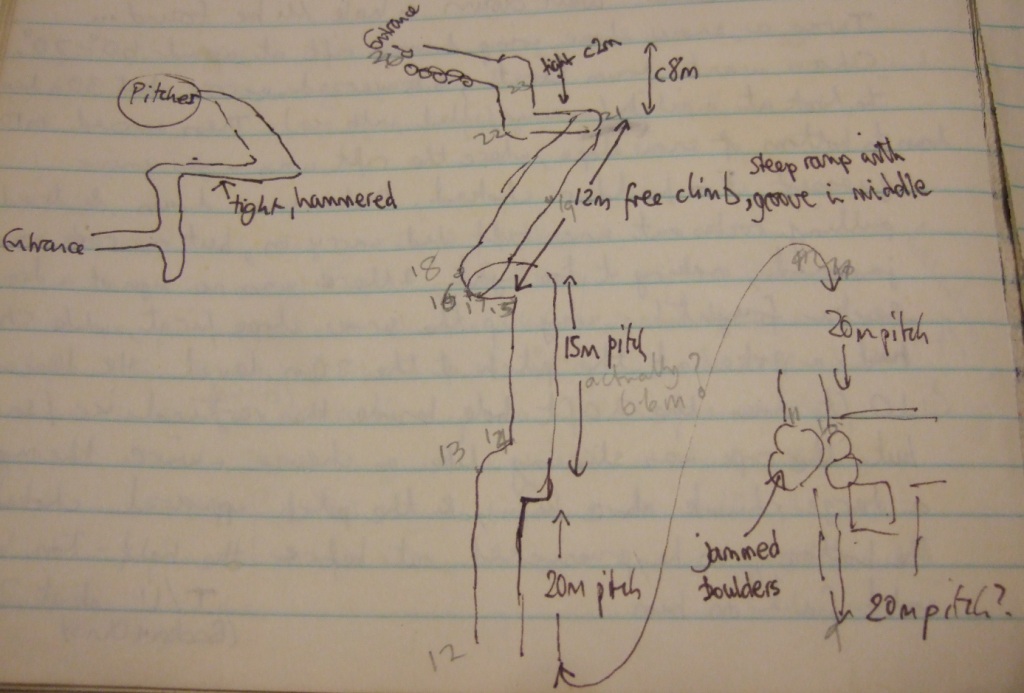 Pitches
tight, hammered
Entrance
Entrance
tight c2m
c8m
23
22
21
19
12m free climb, steep ramp with
groove in middle
18
16 17 15
15m pitch
actually?
6.6m?
13
14
20m pitch
12
20m pitch
11
jammed
boulders
20m pitch?